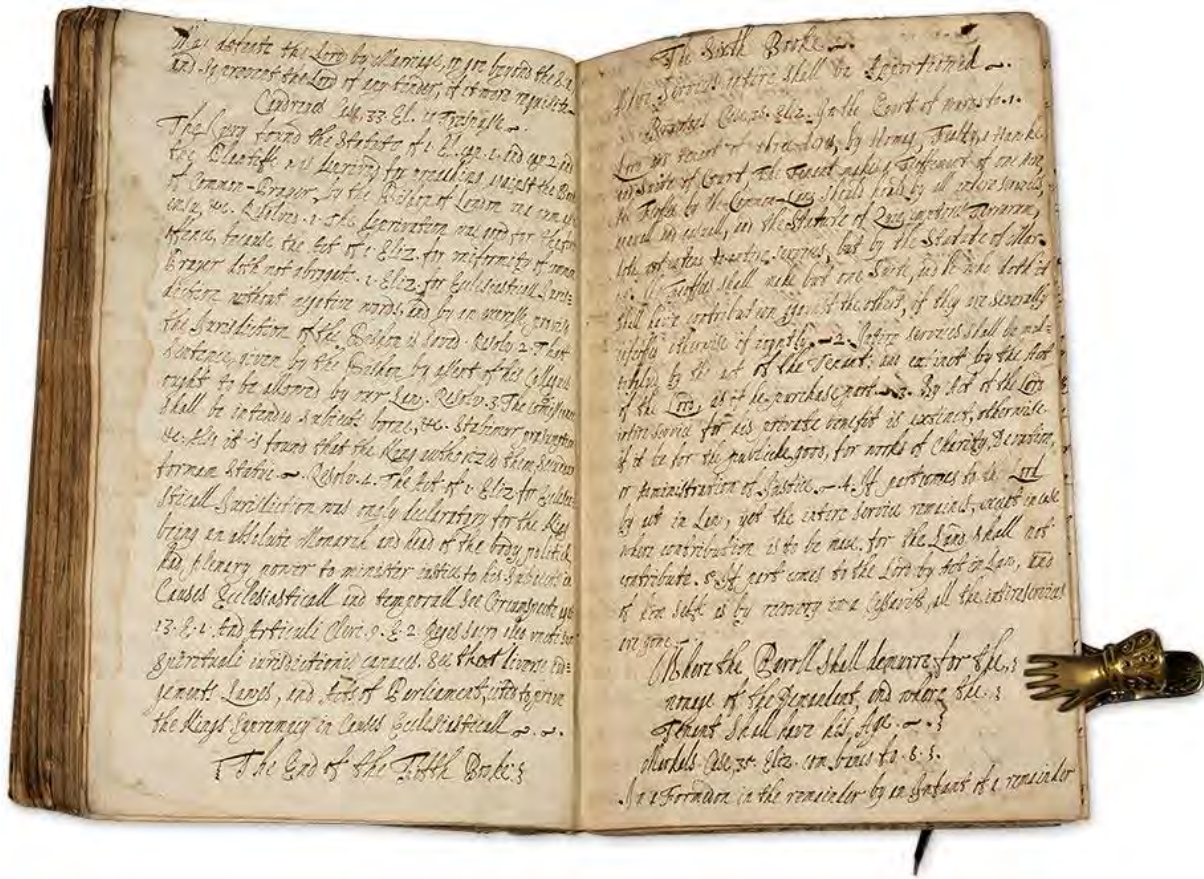 may defeate the Lord by Marriage, or goe beyond the Sea,
and so prevent the Lord of any tender, if it were requisite.
Cawdries Case, 33. El. in Trespasse.
The Jury found the Statute of 1. El. cap. 1. and cap 2. and
the Plaintiffe was deprived for preaching against the Book
of Common-Prayer, by the Bishop of London
&c. Resolved. 1. The deprivation was good for the first
offence, because the Act of 1. Eliz. for uniformity of common
Prayer doth not abrogate. 1. Eliz. for Ecclesiasticall Juris=
diction without negative words, and by an expresse proviso
the Jurisdiction of the Bishop is saved. Resolv. 2. That
Sentence, given by the Bishop by assent of his Collegues
ought to be allowed by our Law. Resolv. 3. The Commissioners
shall be intended subjects borne, &c. Stabitur
&c. Also it is found that the King authorized them, secundum
formam Statut. Resolv. 4. The Act of 1. Eliz. for Ecclesia
sticall Jurisdiction was onely declaratory for the King
being an absolute Monarch and head of the body politick
had plenary power to minister justice to his subjects in
Causes Ecclesiasticall and temporall See Circumspecte
13. E. 1. And Articuli Cleri. 9. E. 2. Reges sacro oleo uncti sunt
spiritualis jurisdictionis capaces. See there diverse Jud=
gements Lawes, and Acts of Parliament, cited to prove
the Kings Supremacy in Causes Ecclesiasticall
The End of the Fifth Booke
The Sixth Booke
Where Services entire shall be Apportioned
Case, 26. Eliz. In the Court of wards fo. 1.
Lord and tenant of three Acres, by Homage, Fealty, a Hawke
and Suite of Court, the Tenant making Feoffement of one Acre,
the Feoffee by the Common-Law should hold by all entire services,
annuall and casuall, and the Statute of Quia emptores Terrarum,
doth not extend to entire services, but by the Statute of Marle.
Feoffees shall make but one Suite, and he who doth it
shall have contribution against the others, if they are severally
infeoffed otherwise if joyntly. 2. Entire services shall be mul=
tiplyed by the act of the Tenant: and extinct by the Act
of the Lord, as if he purchase part. 3. By Act of the Lord
entire service for his private benefit is extinct, otherwise
if it be for the publicke good, for works of Charity, Devotion,
or administration of Justice. 4. If part comes to the Lord
by act in Law, yet the entire service remaines, except in case
where contribution is to be made, for the Land shall not
contribute. 5. If part comes to the Lord by Act in Law, and
of him selfe as by recovery in a Cessavit, all the entire services
are gone.
Where the Paroll shall demurre for the
nonage of the Demandent, and where the
Tenent Shall have his Age.
Markals Case, 35. Eliz. com. banco fo. 3.
In a Formedon in the remainder by an Infant of a remainder